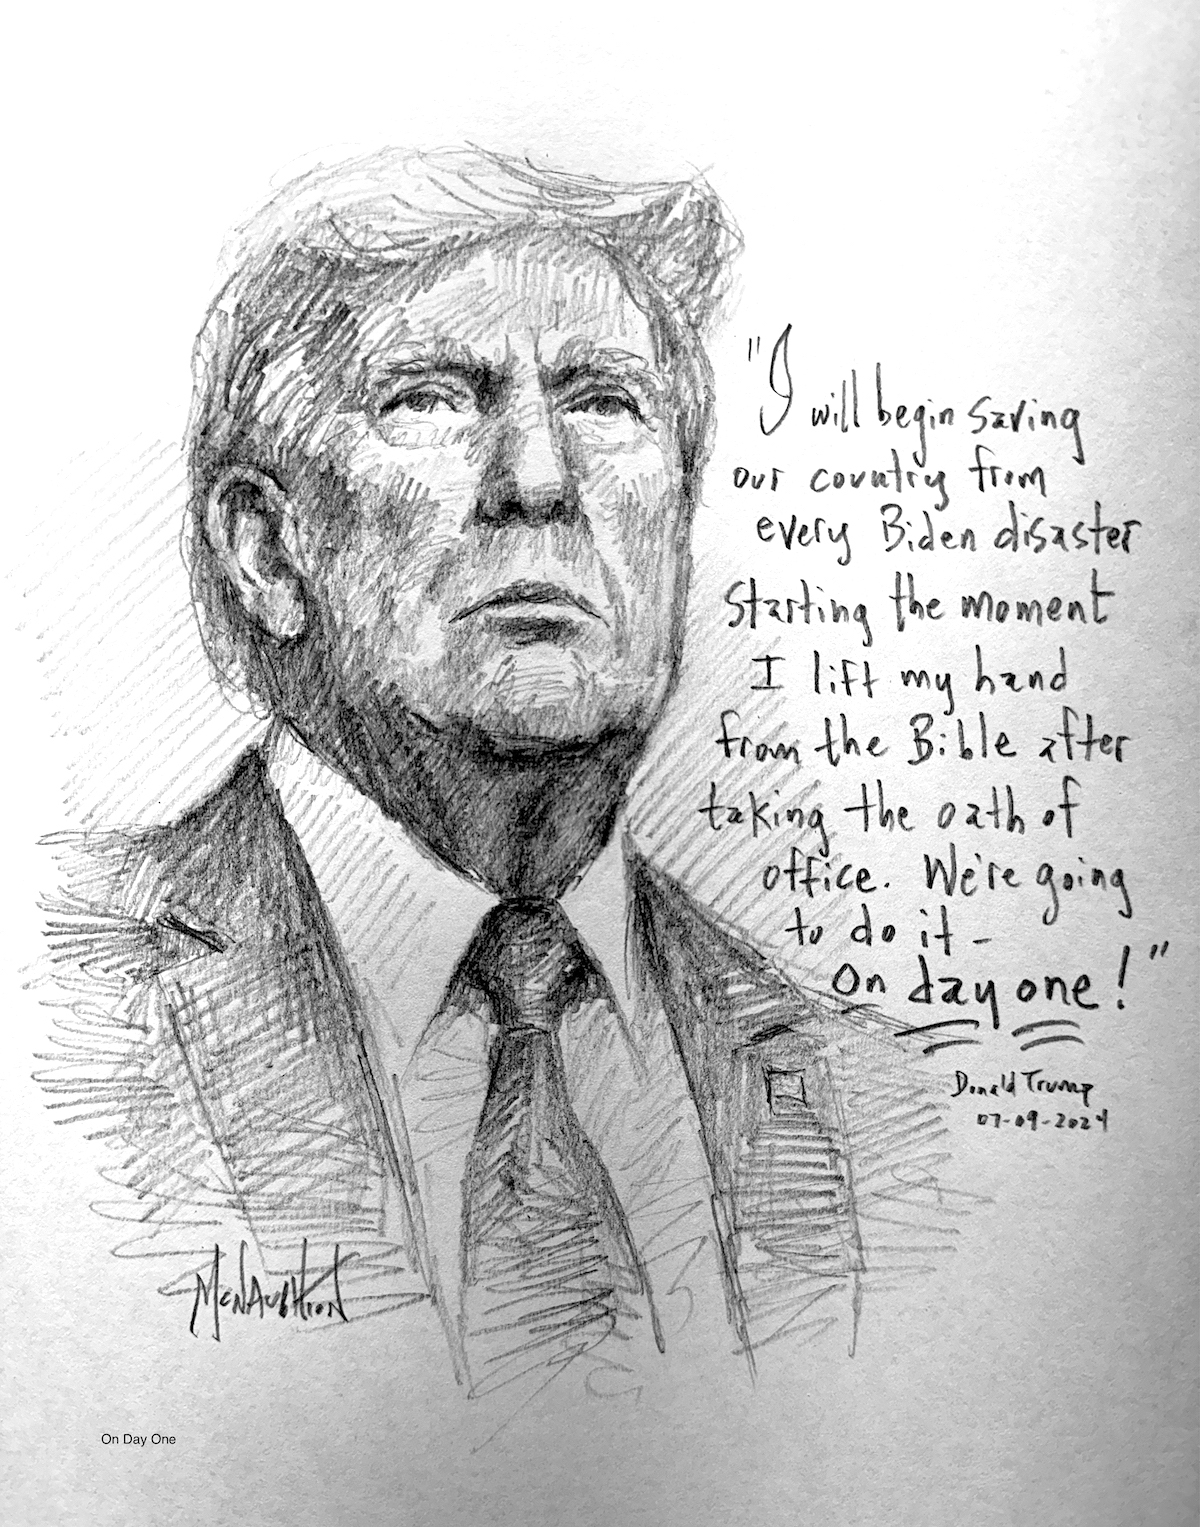 "I will begin saving
our country from
every Biden disaster
starting the moment
I lift my hand
from the Bible after
taking the oath of
office. We're going
to do it -
On day one!"
Donald Trump
07-09-2024
McNaughton
On Day One